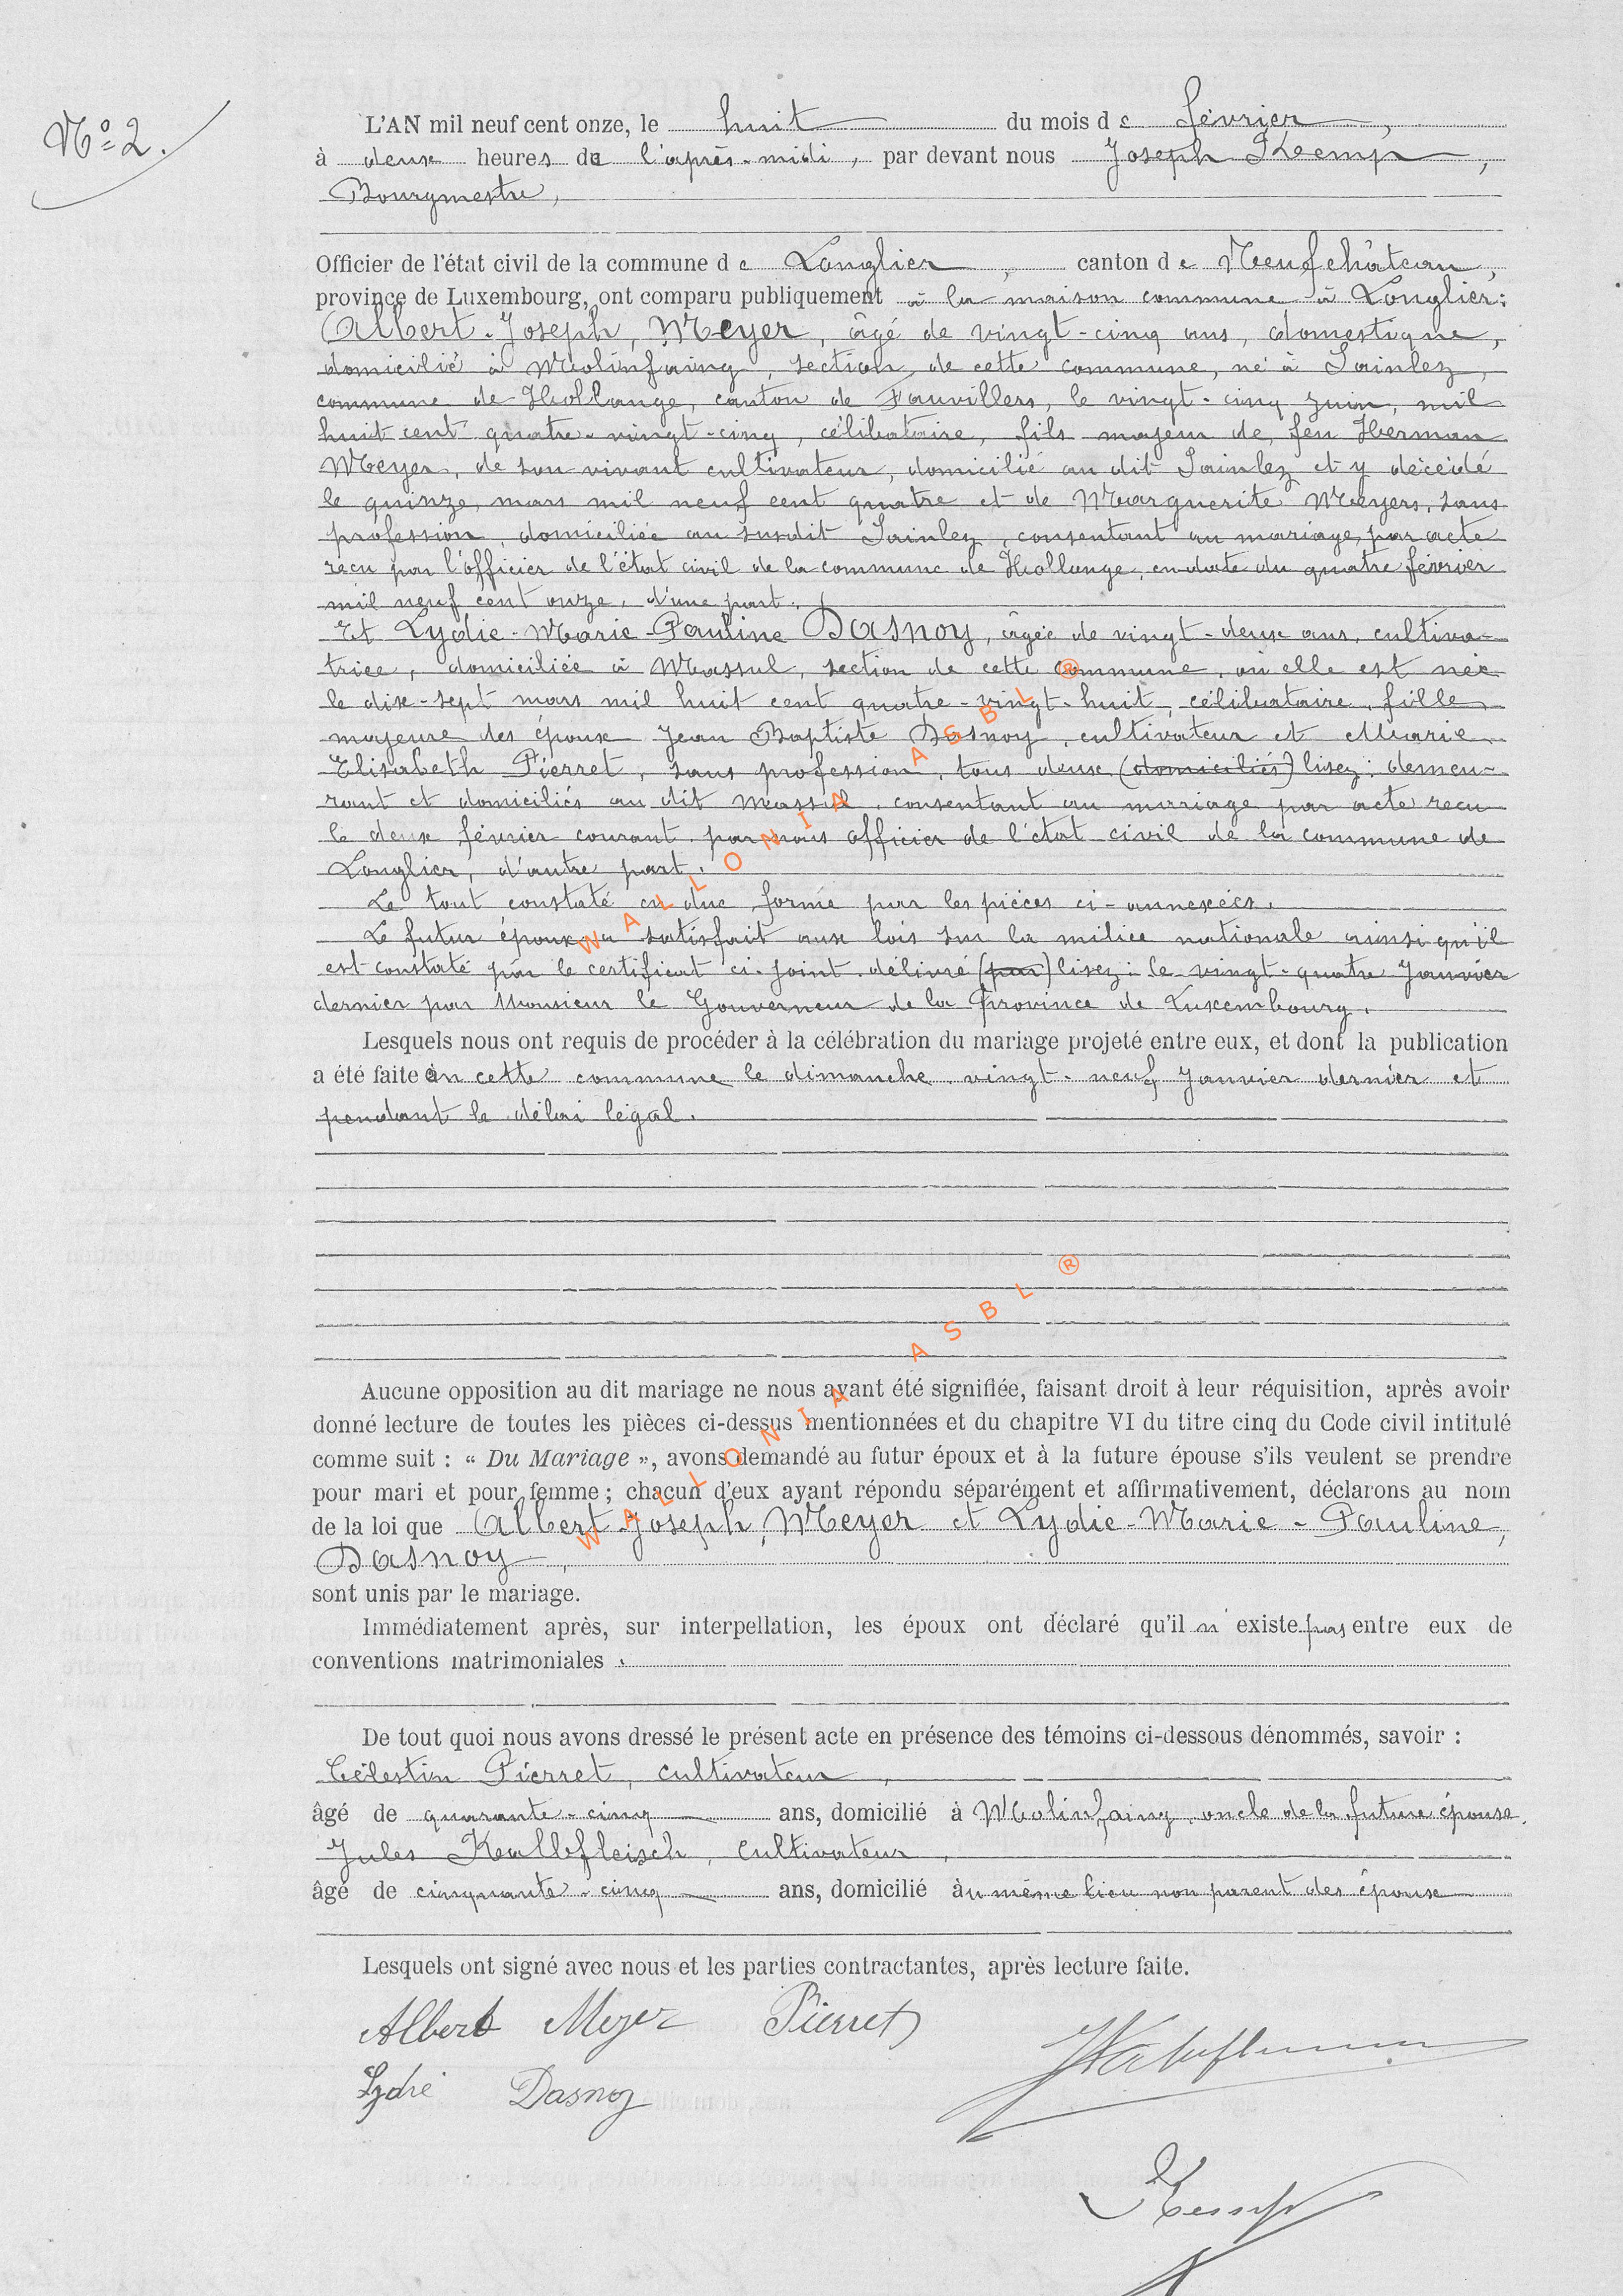 Nº 2.
L'AN mil neuf cent onze, le huit du mois de février,
à deux heures de l'après-midi, par devant nous Joseph Kemp,
Bourgmestre,
Officier de l'état civil de la commune de Longlier, canton de Neufchâteau,
province de Luxembourg, ont comparu publiquement à la maison commune à Longlier:
Albert-Joseph, Meyer, âgé de vingt-cinq ans, domestique,
domicilié à Molinfaing, section de cette commune, né à Sainlez,
commune de Hollange, canton de Fauvillers, le vingt-cinq juin, mil
huit cent quatre-vingt-cinq, célibataire, fils majeur de feu Herman
Meyer, de son vivant cultivateur, domicilié au dit Sainlez et y décédé
le quinze mars mil neuf cent quatre et de Marguerite Meyers, sans
profession, domiciliée au susdit Sainlez, consentant au mariage par acte
reçu par l'officier de l'état civil de la commune de Hollange, en date du quatre février
mil neuf cent onze, d'une part.
Et Lydie-Marie-Pauline Dasnoy, âgée de vingt-deux ans, cultiva-
trice, domiciliée à Massul, section de cette commune, où elle est née
le dix-sept mars mil huit cent quatre-vingt-huit, célibataire, fille
majeure des époux Jean Baptiste Dasnoy, cultivateur et Marie
Elisabeth Pierret, sans profession, tous deux (domiciliés) lisez: demeu-
rant et domiciliés au dit Massul, consentant au mariage par acte reçu
le deux février courant par nous officier de l'état civil de la commune de
Longlier, d'autre part.
Le tout constaté en due forme par les pièces ci-annexées.
Le futur époux a satisfait aux lois sur la milice nationale ainsi qu'il
est constaté par le certificat ci-joint délivré (par) lisez: le vingt-quatre Janvier
dernier par Monsieur le Gouverneur de la Province de Luxembourg.
Lesquels nous ont requis de procéder à la célébration du mariage projeté entre eux, et dont la publication
a été faite en cette commune le dimanche vingt-neuf Janvier dernier et
pendant le délai légal.
Aucune opposition au dit mariage ne nous ayant été signifiée, faisant droit à leur réquisition, après avoir
donné lecture de toutes les pièces ci-dessus mentionnées et du chapitre VI du titre cinq du Code civil intitulé
comme suit : « Du Mariage », avons demandé au futur époux et à la future épouse s'ils veulent se prendre
pour mari et pour femme ; chacun d'eux ayant répondu séparément et affirmativement, déclarons au nom
de la loi que Albert-Joseph, Meyer et Lydie-Marie-Pauline,
Dasnoy,
sont unis par le mariage.
Immédiatement après, sur interpellation, les époux ont déclaré qu'il n'existe pas entre eux de
conventions matrimoniales.
De tout quoi nous avons dressé le présent acte en présence des témoins ci-dessous dénommés, savoir :
Célestin Pierret, cultivateur,
âgé de quarante-cinq ans, domicilié à Molinfaing, oncle de la future épouse.
Jules Kalbfleisch, cultivateur,
âgé de cinquante-cinq ans, domicilié au même lieu non parent des époux
Lesquels ont signé avec nous et les parties contractantes, après lecture faite.
Albert Meyer Pierret
Lydie Dasnoy
Kemp
WALLONIA ASBL ®
WALLONIA ASBL ®